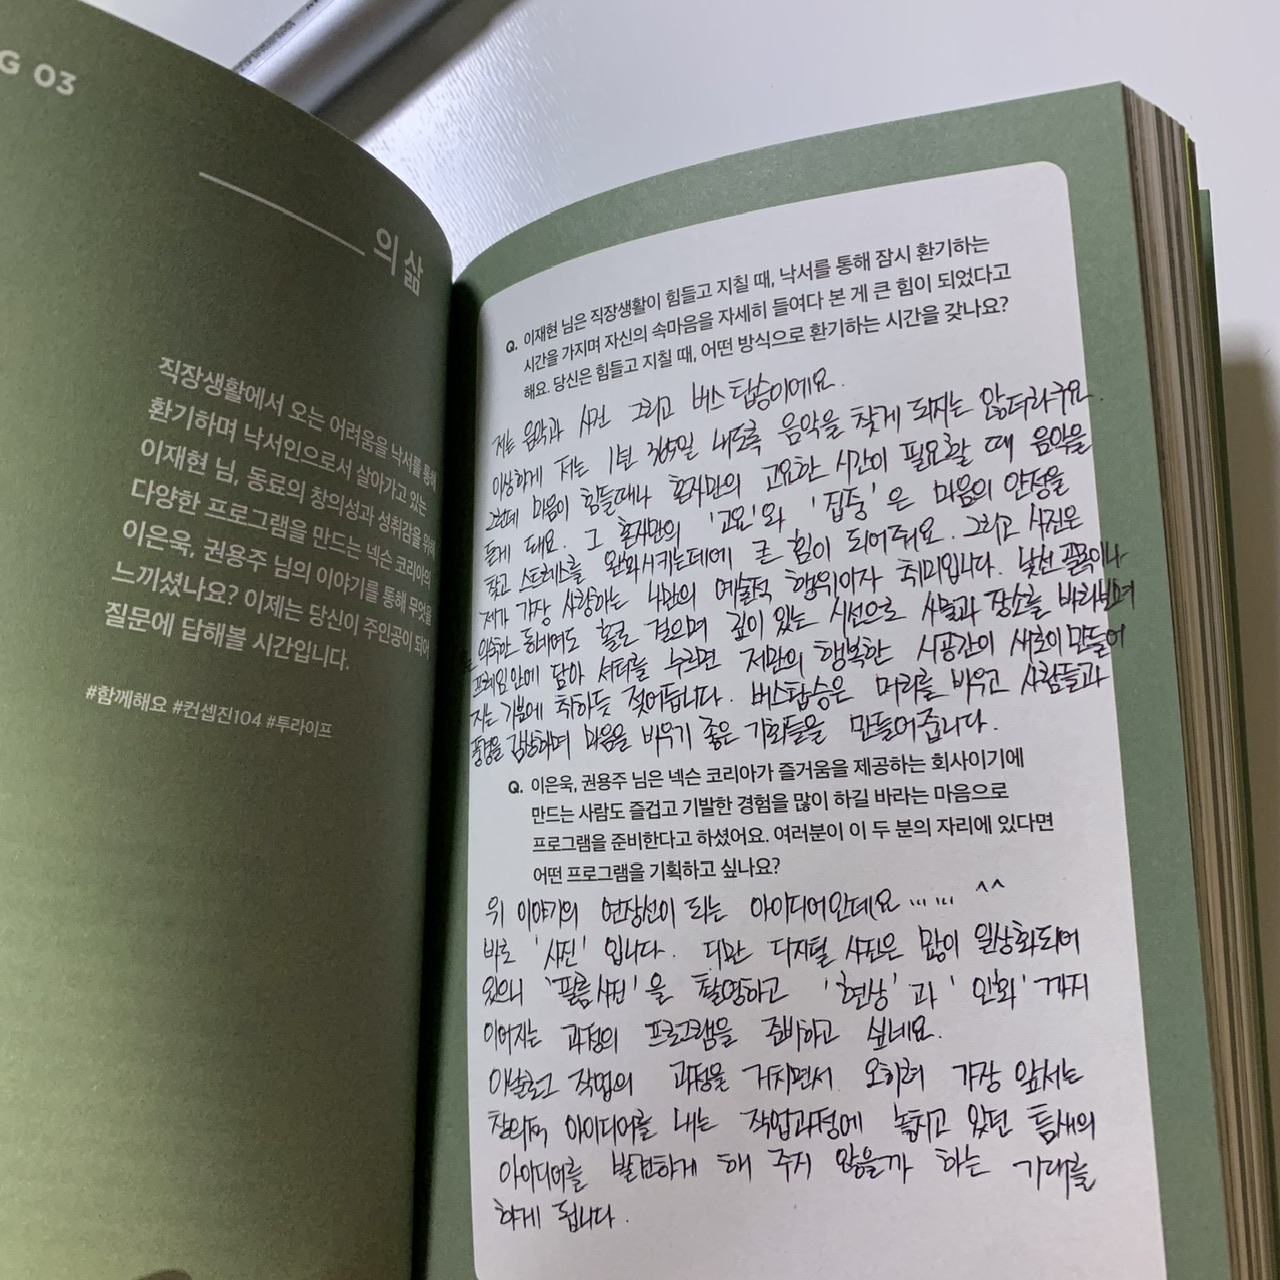 G 03
의 삶
직장생활에서 오는 어려움을 낙서를 통해
환기하며 낙서인으로서 살아가고 있는
이재현 님, 동료의 창의성과 성취감을 위해
다양한 프로그램을 만드는 넥슨 코리아의
이은욱, 권용주 님의 이야기를 통해 무엇을
느끼셨나요? 이제는 당신이 주인공이 되어
질문에 답해볼 시간입니다.
#함께해요 #컨셉진104 #투라이프
Q. 이재현 님은 직장생활이 힘들고 지칠 때, 낙서를 통해 잠시 환기하는
시간을 가지며 자신의 속마음을 자세히 들여다 본 게 큰 힘이 되었다고
해요. 당신은 힘들고 지칠 때, 어떤 방식으로 환기하는 시간을 갖나요?
저는 음악과 사진 그리고 버스 탑승이에요.
이상하게 저는 1년 365일 내도록 음악을 찾게 되지는 않더라구요.
그런데 마음이 힘들때나 혼자만의 고요한 시간이 필요할 때 음악을
듣게 돼요. 그 혼자만의 '고요'와 '집중'은 마음의 안정을
찾고 스트레스를 완화시키는데에 큰 힘이 되어줘요. 그리고 사진은
제가 가장 사랑하는 나만의 예술적 행위이자 취미입니다. 낯선 골목이나
익숙한 동네에도 홀로 걸으며 깊이 있는 시선으로 사물과 장소를 바라보며
프레임 안에 담아 셔터를 누르면 저만의 행복한 시공간이 새로이 만들어
지는 기분에 취하듯 젖어듭니다. 버스탑승은 머리를 비우고 사람들과
풍경을 감상하며 마음을 비우기 좋은 기회들을 만들어줍니다.
Q. 이은욱, 권용주 님은 넥슨 코리아가 즐거움을 제공하는 회사이기에
만드는 사람도 즐겁고 기발한 경험을 많이 하길 바라는 마음으로
프로그램을 준비한다고 하셨어요. 여러분이 이 두 분의 자리에 있다면
어떤 프로그램을 기획하고 싶나요?
위 이야기의 연장선이 되는 아이디어인데요...... ^^
바로 '사진' 입니다. 다만 디지털 사진은 많이 일상화되어
있으니 '필름사진'을 촬영하고 '현상'과 '인화'까지
이어지는 과정의 프로그램을 준비하고 싶네요.
아날로그 작업의 과정을 거치면서 오히려 가장 앞서는
창의적 아이디어를 내는 작업과정에 놓치고 있던 틈새의
아이디어를 발견하게 해 주지 않을까 하는 기대를
하게 됩니다.